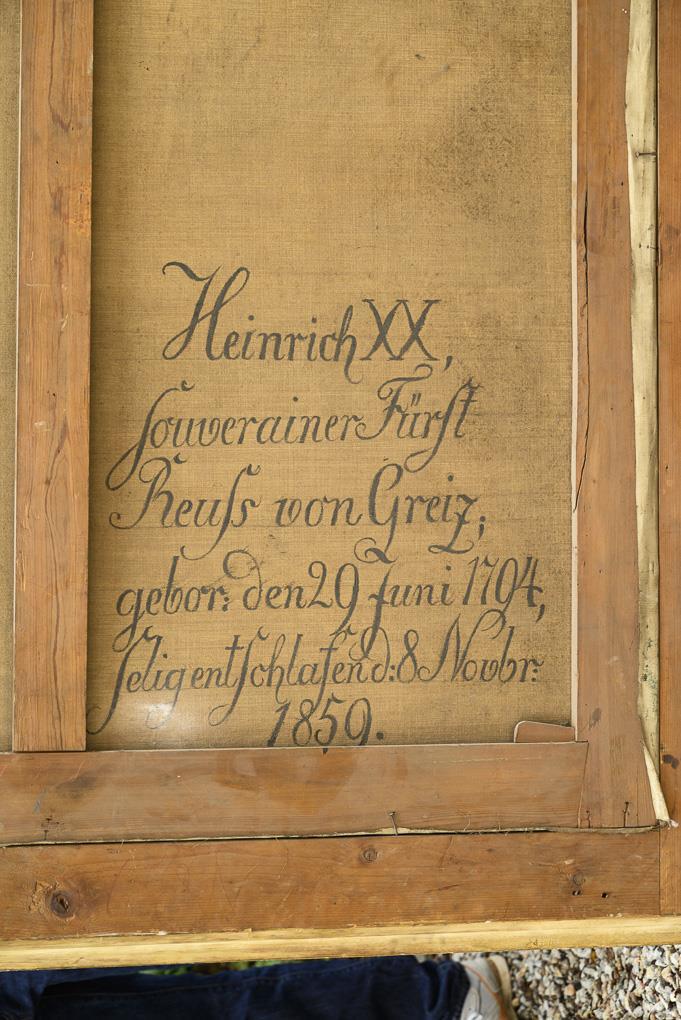 Heinrich XX,
ſouverainer Fürſt
Reuſs von Greiz;
gebor: den 29 Juni 1794,
ſelig entſchlafen d: 8 Novbr:
1859.